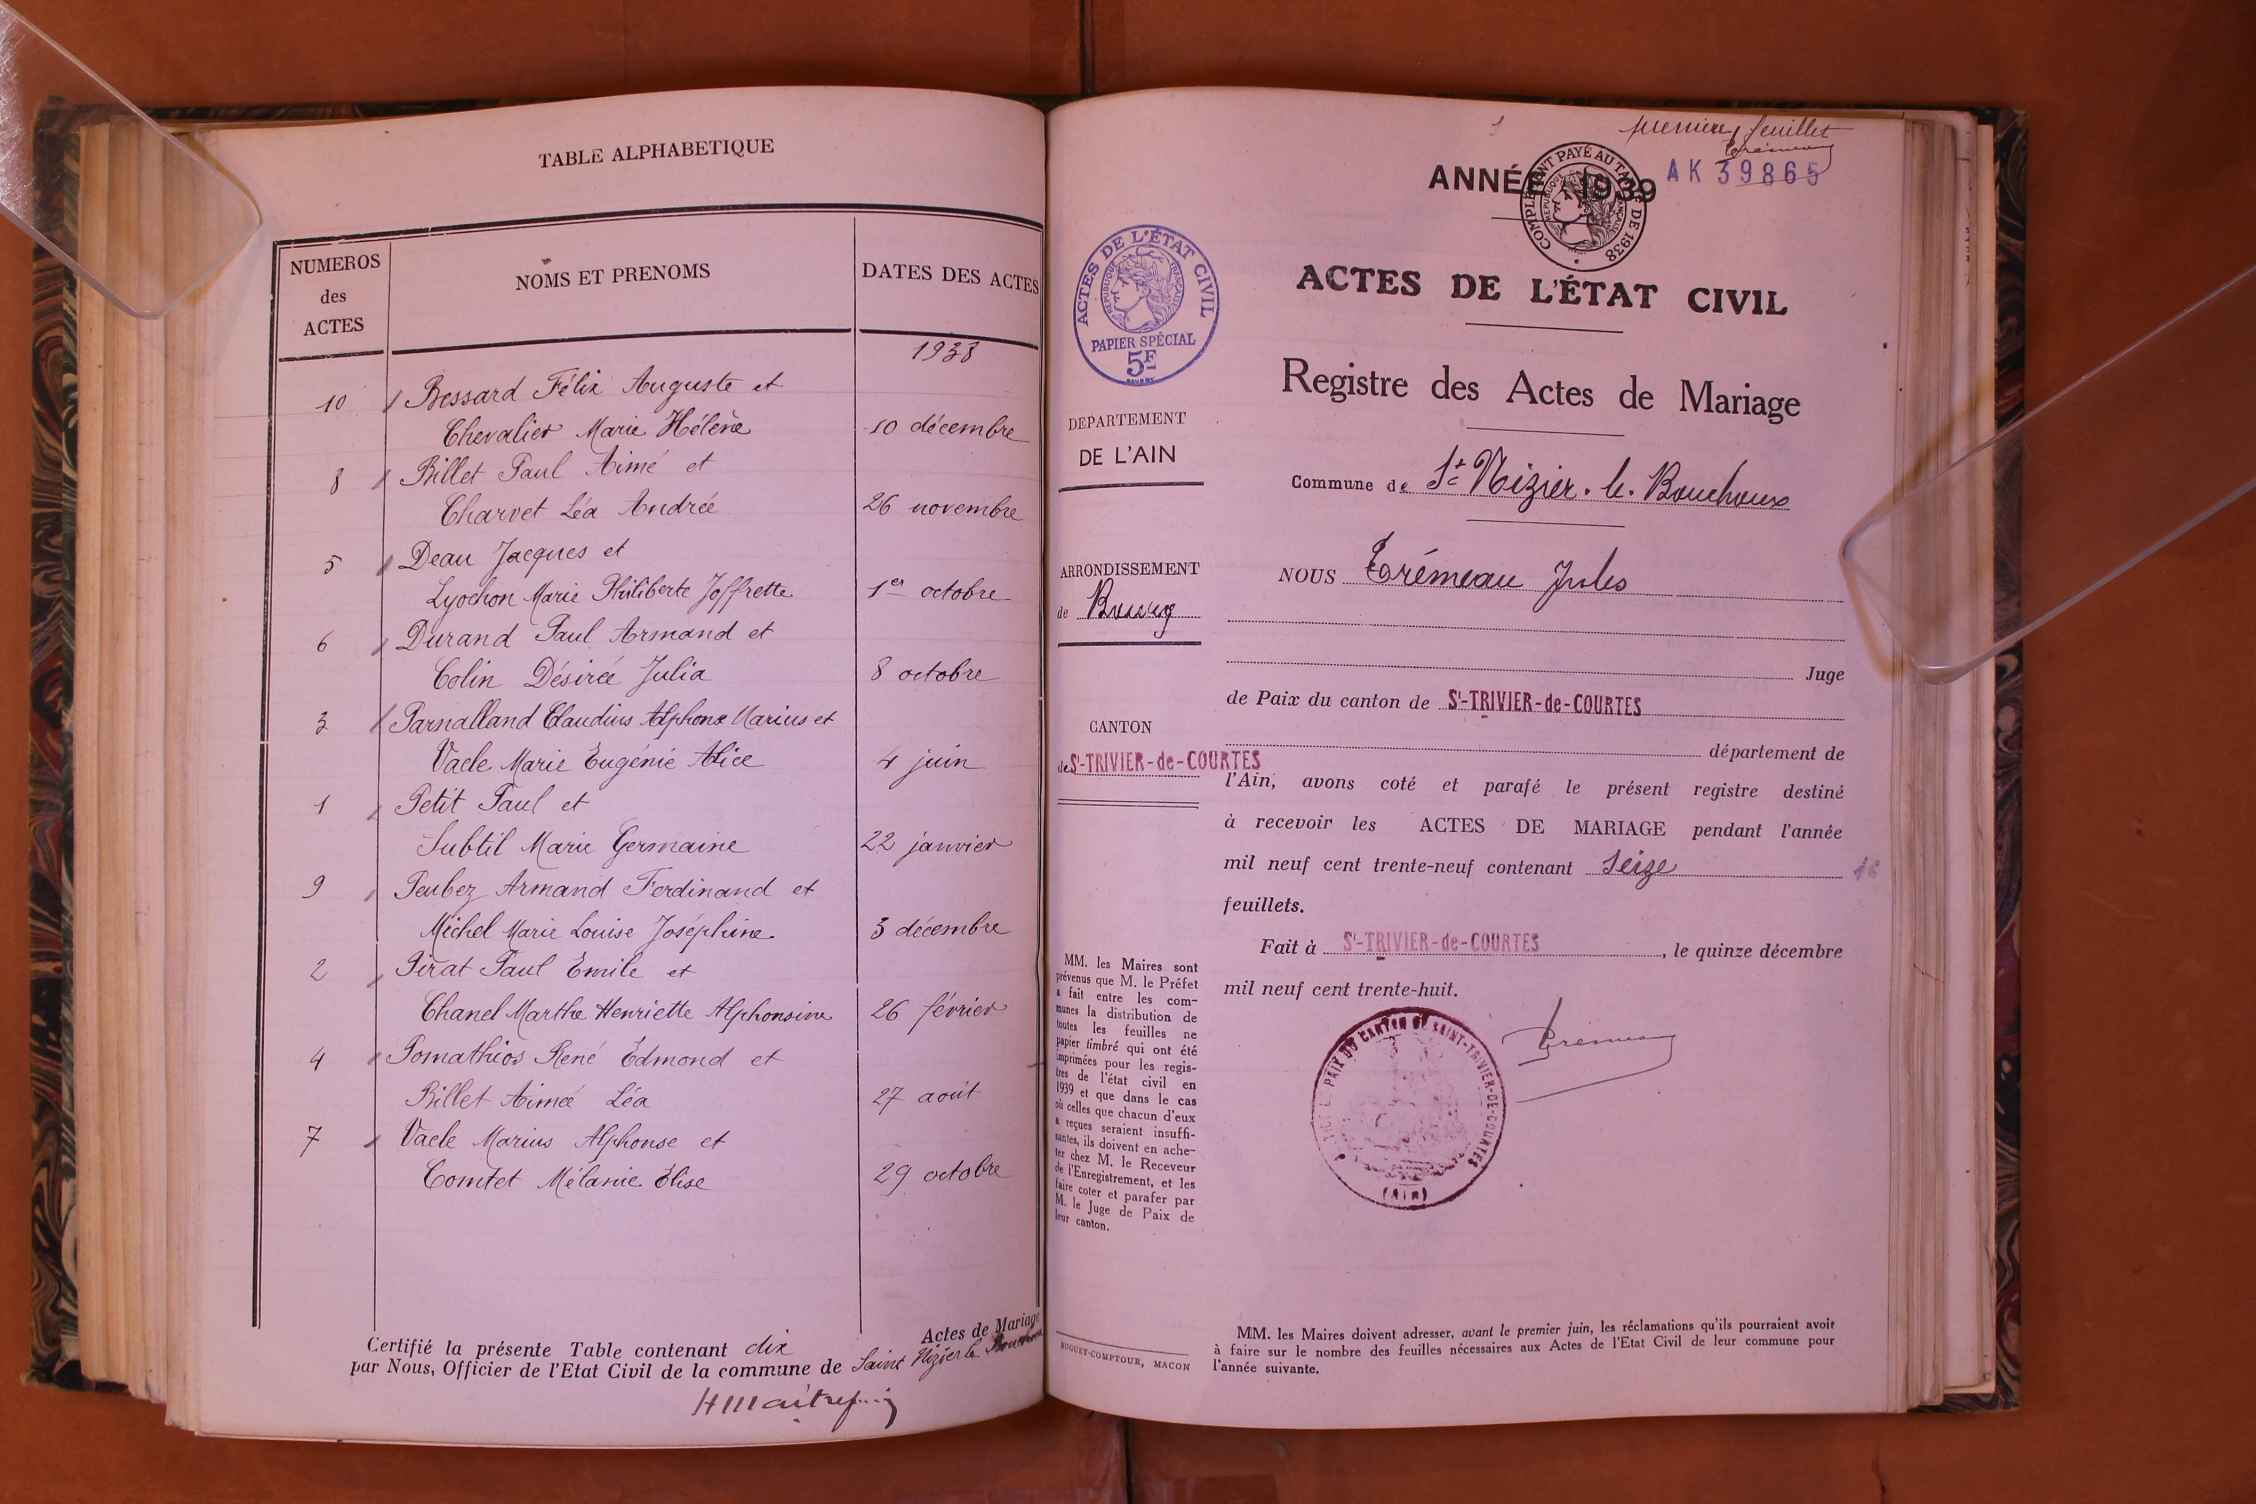 TABLE ALPHABETIQUE
NUMEROS
des
ACTES
NOMS ET PRENOMS
DATES DES ACTES
1938
10 Bessard Félix Auguste et
Chevalier Marie Hélène 10 décembre
8 Billet Paul Aimé et
Charvet Léa Andrée 26 novembre
5 Deau Jacques et
Lyochon Marie Philiberte Joffrette 1er octobre
6 Durand Paul Armand et
Colin Désirée Julia 8 octobre
3 Parnalland Claudius Alphonse Marius et
Vacle Marie Eugénie Alice 4 juin
1 Petit Paul et
Subtil Marie Germaine 22 janvier
9 Peubez Armand Ferdinand et
Michel Marie Louise Joséphine 3 décembre
2 Pirat Paul Emile et
Chanel Marthe Henriette Alphonsine 26 février
4 Pomathios René Edmond et
Billet Aimée Léa 27 août
7 Vacle Marius Alphonse et
Comtet Mélanie Elise 29 octobre
Certifié la présente Table contenant dix Actes de Mariage
par Nous, Officier de l'Etat Civil de la commune de Saint Nizier le Bouchoux
premier feuillet
ANNÉE 1939
AK 39865
COMPLEMENT PAYÉ AU TARIF DE 1938
REPUBLIQUE FRANÇAISE
ACTES DE L'ÉTAT CIVIL
REPUBLIQUE FRANÇAISE
PAPIER SPÉCIAL
5F
DEPARTEMENT
DE L'AIN
ARRONDISSEMENT
de Bourg
CANTON
de St-TRIVIER-de-COURTES
MM. les Maires sont
prévenus que M. le Préfet
a fait entre les com-
munes la distribution de
toutes les feuilles ne
papier timbré qui ont été
imprimées pour les regis-
tres de l'état civil en
1939 et que dans le cas
où celles que chacun d'eux
a reçues seraient insuffi-
santes, ils doivent en ache-
ter chez M. le Receveur
de l'Enregistrement, et les
faire coter et parafer par
M. le Juge de Paix de
leur canton.
BUGUET-COMPTOUR, MACON
ACTES DE L'ÉTAT CIVIL
Registre des Actes de Mariage
Commune de St Nizier-le-Bouchoux
NOUS Trémeau Jules
Juge
de Paix du canton de St-TRIVIER-de-COURTES
département de
l'Ain, avons coté et parafé le présent registre destiné
à recevoir les ACTES DE MARIAGE pendant l'année
mil neuf cent trente-neuf contenant Seize 16
feuillets.
Fait à St-TRIVIER-de-COURTES, le quinze décembre
mil neuf cent trente-huit.
PAIX DU CANTON DE SAINT-TRIVIER-DE-COURTES
(Ain)
MM. les Maires doivent adresser, avant le premier juin, les réclamations qu'ils pourraient avoir
à faire sur le nombre des feuilles nécessaires aux Actes de l'Etat Civil de leur commune pour
l'année suivante.